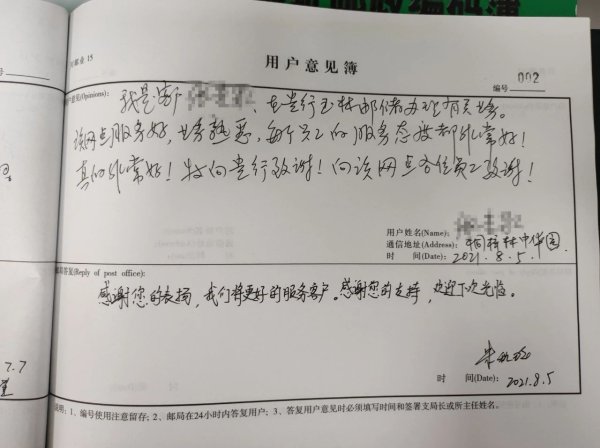 政编码簿
邮业 15
用户意见簿
编号 002
意见(Opinions): 我是客户 在贵行玉林邮储办理有关业务。
该网点服务好，业务熟悉，每个员工的服务态度都非常好！
真的非常好！特向贵行致谢！向该网点各位员工致谢！
用户姓名(Name):
通信地址(Address): 桐梓林中华园
时 间(Date): 2021.8.5.
邮局答复(Reply of post office):
感谢您的表扬，我们将更好的服务客户。感谢您的支持，欢迎下次光临。
时 间(Date): 2021.8.5
7.7
说明：1、编号使用注意留存；2、邮局在24小时内答复用户；3、答复用户意见时必须填写时间和签署支局长或所主任姓名。